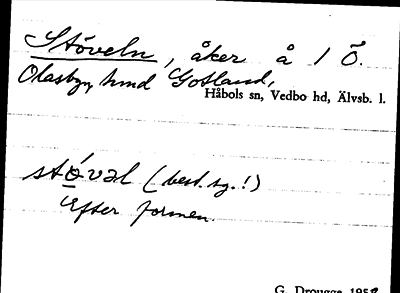 Stöveln, åker å 1 Ö.
Olasbyn, hmd Gotland,
Håbols sn, Vedbo hd, Älvsb. l.
stövəl (best. sg.!)
Efter formen.
G. Drougge 1958